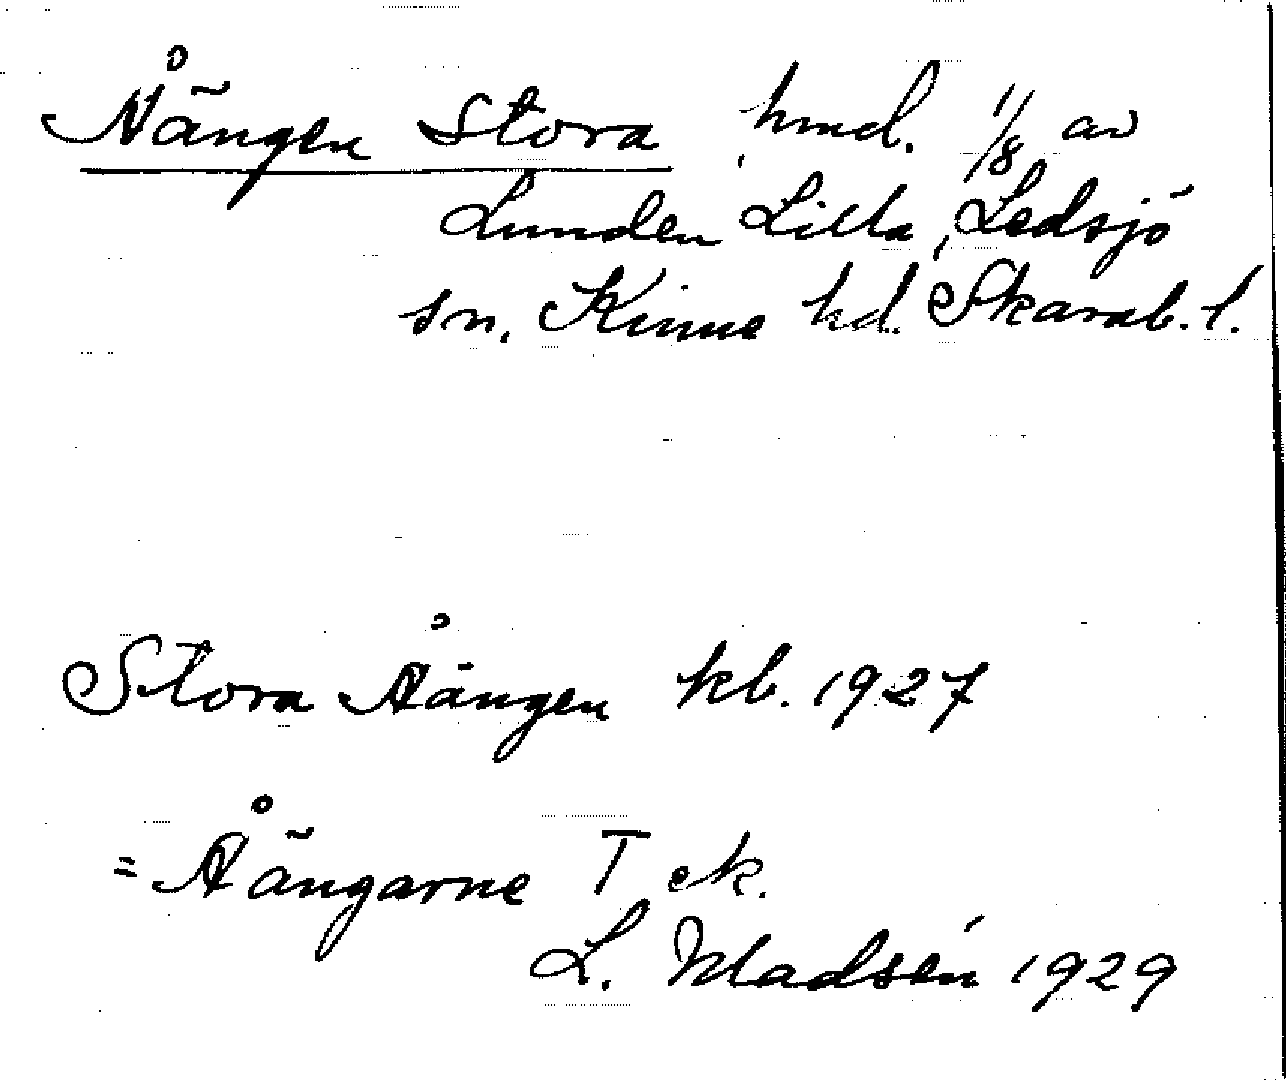 Åängen Stora, hmd. 1/8 av
Lunden Lilla, Ledsjö
sn. Kinne hd. Skarab. l.
Stora Åängen kb. 1927
= Åängarne T ek.
L. Madsén 1929